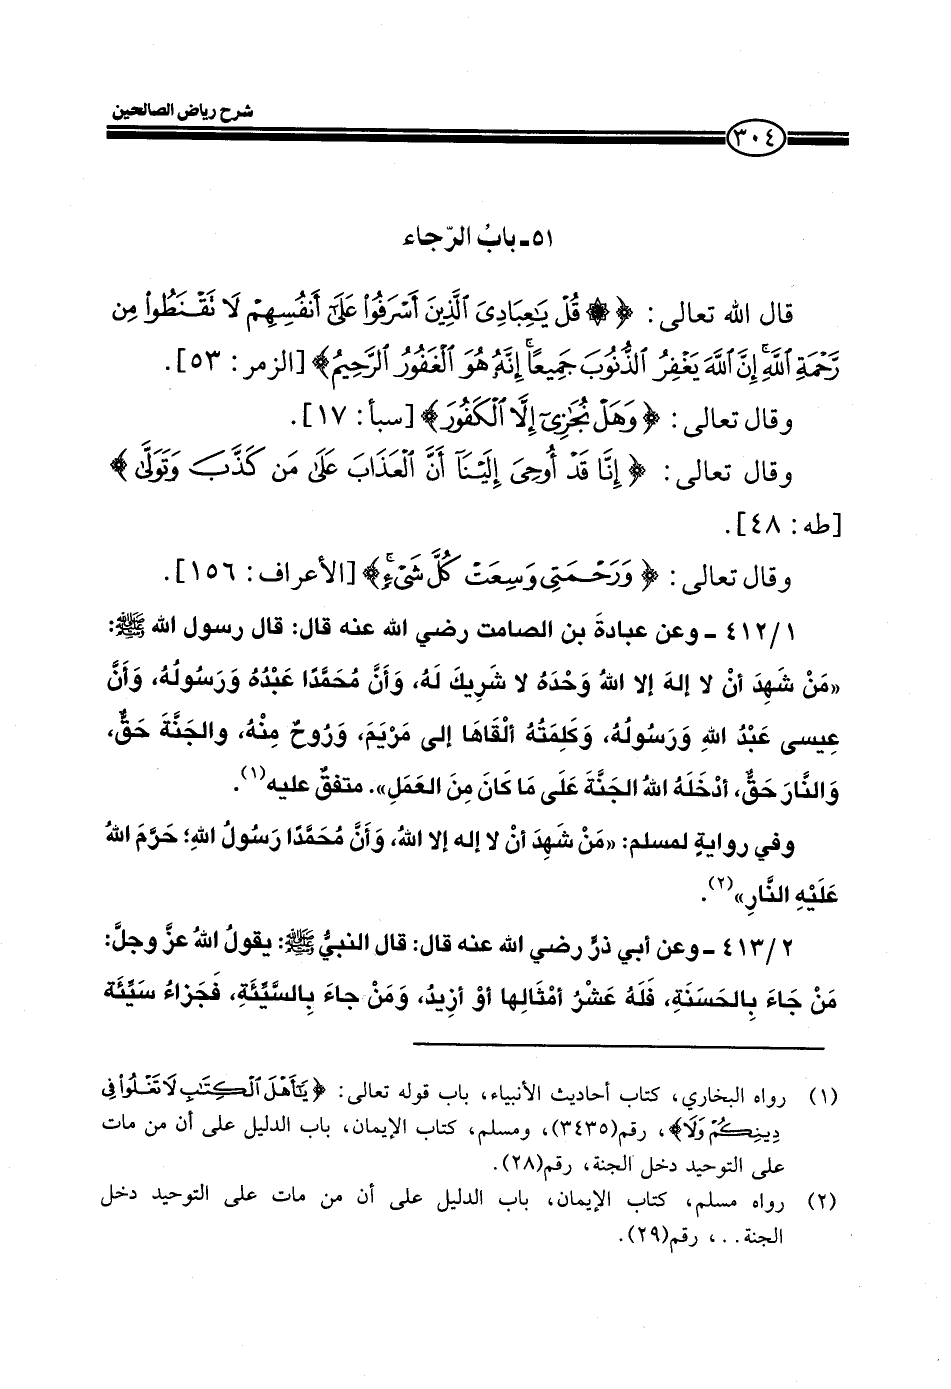 شرح رياض الصالحين
٣٠٤
٥١ـ بابُ الرّجاء
قال الله تعالى: ﴿ ۞ قُلْ يَٰعِبَادِىَ ٱلَّذِينَ أَسْرَفُوا۟ عَلَىٰٓ أَنفُسِهِمْ لَا تَقْنَطُوا۟ مِن
رَّحْمَةِ ٱللَّهِ ۚ إِنَّ ٱللَّهَ يَغْفِرُ ٱلذُّنُوبَ جَمِيعًا ۚ إِنَّهُۥ هُوَ ٱلْغَفُورُ ٱلرَّحِيمُ﴾ [الزمر: ٥٣].
وقال تعالى: ﴿ وَهَلْ نُجَٰزِىٓ إِلَّا ٱلْكَفُورَ﴾ [سبأ: ١٧].
وقال تعالى: ﴿ إِنَّا قَدْ أُوحِىَ إِلَيْنَآ أَنَّ ٱلْعَذَابَ عَلَىٰ مَن كَذَّبَ وَتَوَلَّىٰ ﴾
[طه: ٤٨].
وقال تعالى: ﴿ وَرَحْمَتِى وَسِعَتْ كُلَّ شَىْءٍ ۚ﴾ [الأعراف: ١٥٦].
٤١٢/١ ـ وعن عبادةَ بن الصامت رضي الله عنه قال: قال رسول الله ﷺ:
«مَنْ شَهِدَ أنْ لا إلهَ إلا اللهُ وَحْدَهُ لا شَرِيكَ لَهُ، وَأنَّ مُحَمَّدًا عَبْدُهُ وَرَسُولُهُ، وَأنَّ
عِيسى عَبْدُ اللهِ وَرَسُولُهُ، وَكَلِمَتُهُ ألْقَاهَا إلى مَرْيَمَ، وَرُوحٌ مِنْهُ، والجَنَّةَ حَقٌّ،
وَالنَّارَ حَقٌّ، أدْخَلَهُ اللهُ الجَنَّةَ عَلَى مَا كَانَ مِنَ العَمَلِ». متفقٌ عليه(١).
وفي روايةٍ لمسلم: «مَنْ شَهِدَ أنْ لا إله إلا اللهُ، وَأنَّ مُحَمَّدًا رَسُولُ اللهِ؛ حَرَّمَ اللهُ
عَلَيْهِ النَّارِ»(٢).
٤١٣/٢ ـ وعن أبي ذرٍّ رضي الله عنه قال: قال النبيُّ ﷺ: يقولُ اللهُ عزَّ وجلَّ:
مَنْ جَاءَ بِالحَسَنَةِ، فَلَهُ عَشْرُ أمْثَالِها أوْ أزِيدُ، وَمَنْ جاءَ بِالسَّيِّئَةِ، فَجَزَاءُ سَيِّئَة
(١) رواه البخاري، كتاب أحاديث الأنبياء، باب قوله تعالى: ﴿ يَٰٓأَهْلَ ٱلْكِتَٰبِ لَا تَغْلُوا۟ فِى
دِينِكُمْ وَلَا﴾، رقم(٣٤٣٥)، ومسلم، كتاب الإيمان، باب الدليل على أن من مات
على التوحيد دخل الجنة، رقم(٢٨).
(٢) رواه مسلم، كتاب الإيمان، باب الدليل على أن من مات على التوحيد دخل
الجنة..، رقم(٢٩).